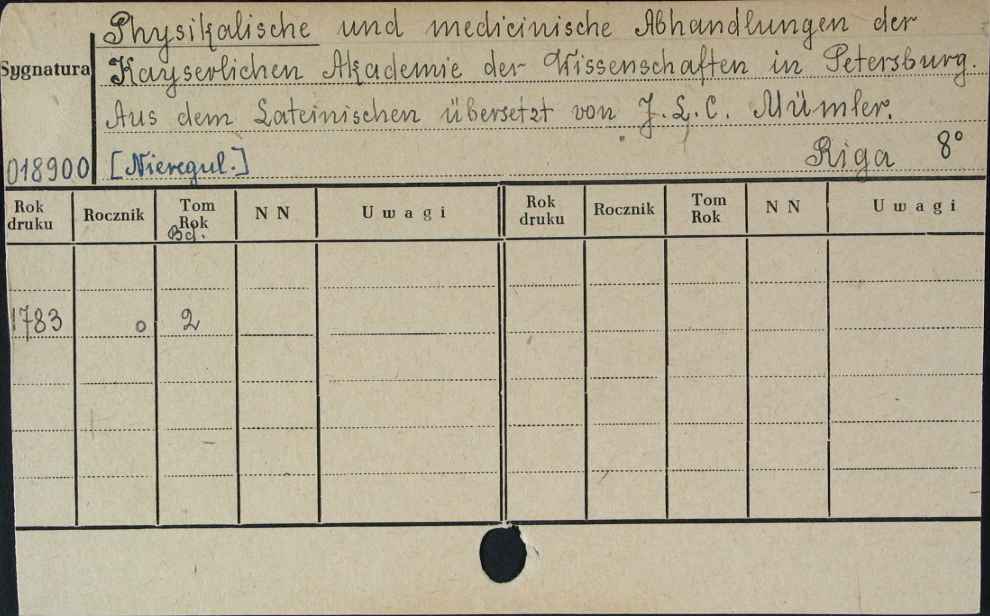 Physikalische und medicinische Abhandlungen der
Sygnatura Kayserlichen Akademie der Wissenschaften in Petersburg.
Aus dem Lateinischen übersetzt von J. L. C. Mümler.
Riga 8°
018900 [Nieregul.]
Rok druku Rocznik Tom Rok Bd. N N Uwagi Rok druku Rocznik Tom Rok N N Uwagi
1783 o 2